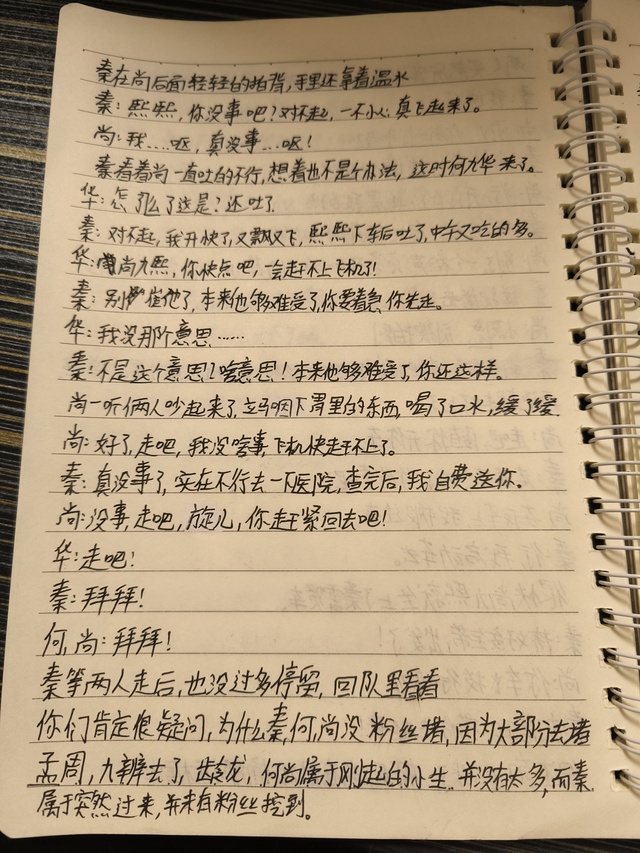 秦在尚后面轻轻的拍背,手里还拿着温水
秦:熙熙,你没事吧?对不起,一不小心真飞起来了。
尚:我....呕,真没事....呕!
秦看着尚一直吐的不行,想着也不是个办法,这时何九华来了。
华:怎么了这是?还吐了.
秦:对不起,我开快了,又飘又飞,熙熙下车后吐了,中午又吃的多。
华:尚九熙,你快点吧,一会赶不上飞机了!
秦:别催他了,本来他够难受了,你要着急你先走。
华:我没那个意思......
秦:不是这个意思?啥意思!本来他够难受了,你还这样。
尚一听俩人吵起来了,立马咽下胃里的东西,喝了口水,缓了缓
尚:好了,走吧,我没啥事,飞机快赶不上了。
秦:真没事了,实在不行去一下医院,查完后,我自费送你。
尚:没事,走吧,旋儿,你赶紧回去吧!
华:走吧!
秦:拜拜!
何,尚:拜拜!
秦等两人走后,也没过多停留,回队里看看
你们肯定很疑问,为什么秦,何,尚没粉丝堵,因为大部分去堵
孟周,九辫去了,龄龙,何尚属于刚起的小生,并没有太多,而秦
属于突然过来,并未有粉丝挖到。